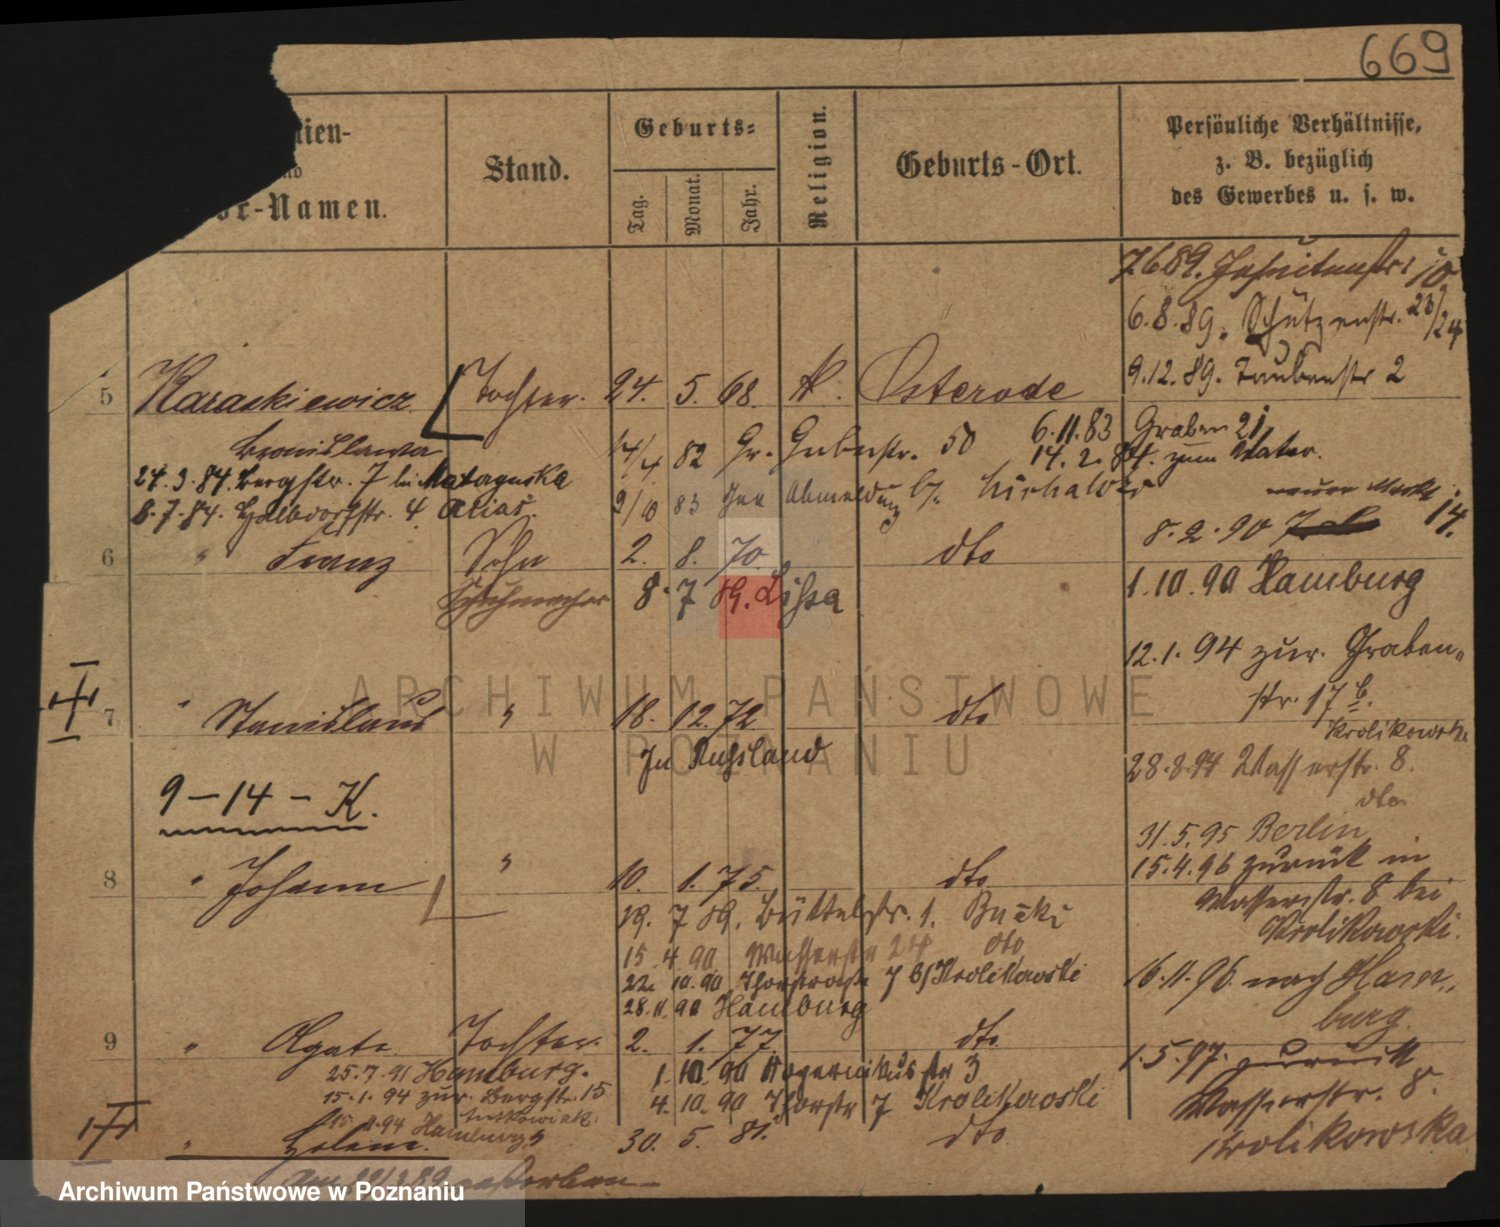 669
ien-
nd
or-Namen.
Stand.
Geburts-
Tag.
Monat.
Jahr.
Religion.
Geburts-Ort.
Persönliche Verhältnisse,
z. B. bezüglich
des Gewerbes u. s. w.
7.6.89. Jesuitenstr. 10
6.8.89. Schützenstr. 23/24
9.12.89. Taubenstr 2
5 Karaskiewicz Tochter. 24. 5. 68. K. Osterode
Bronislawa
14/4 82 Gr. Gerberstr. 50
6.11.83 Graben 21,
14.2.84. zum Vater.
24.3.84. Bergstr. 7 bei
8.7.84. Halbdorfstr. 4
9/10 83 Abmeldung
neuer Markt
8.2.90 14.
6 " Franz Sohn 2. 8. 70. dto
Schuhmacher
8.7 89. Lissa
1.10.90 Hamburg
12.1.94 zur. Graben-
str. 17 b.
7 " Stanislaus " 18. 12. 72. dto
In Russland
28.8.94 Wasserstr. 8.
dto
9-14-K.
31.5.95 Berlin
15.4.96 zurück in
Wasserstr. 8 bei
Krolikowski.
8 " Johann " 10. 1. 75. dto
19.7 89. Büttelstr. 1.
15.4 90 Wasserstr 24 dto
22. 10.90 7 b/ Krolikowski
28.11.90 Hamburg
16.11.96. nach Ham-
burg.
9 " Agate Tochter. 2. 1. 77. dto.
25.7.91 Hamburg.
1.10.90 str 3
15.1.94 zur. Bergstr. 15
4.10.90 7 Krolikowski
1.5.97. zurück
Wasserstr. 8.
Krolikowska
Hamburg
" Helene. 30. 5. 81. dto.
gestorben
ARCHIWUM PAŃSTWOWE
W POZNANIU
Archiwum Państwowe w Poznaniu